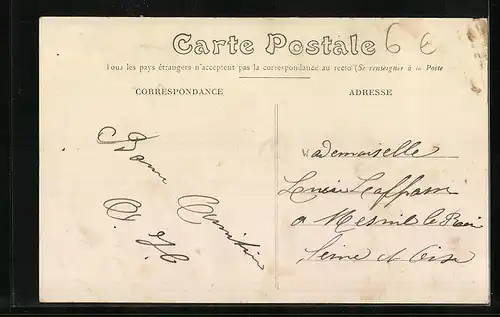 Carte Postale
6 €
Tous les pays étrangers n'acceptent pas la correspondance au recto (Se renseigner à la Poste
CORRESPONDANCE
ADRESSE
Bonne
Amitié
Mademoiselle
a Mesnil le Roi
Seine et Oise